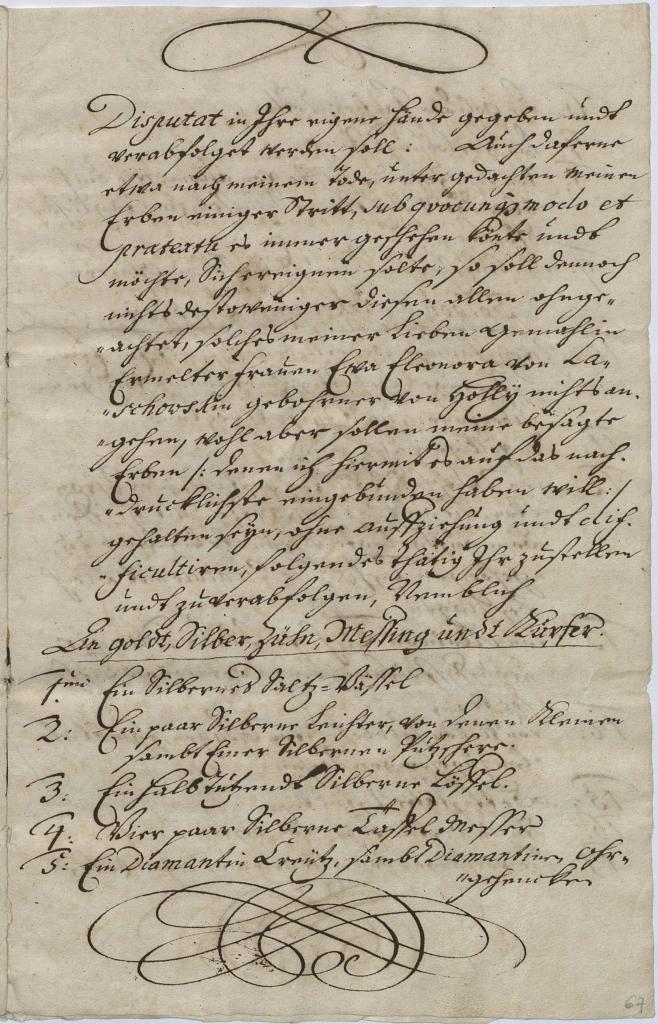 Disputat in Ihre eigene hände gegeben undt
verabfolget werden soll: Auch daferne
etwa nach meinem Tode, unter gedachten meinen
Erben einiger Stritt, sub qvocunq3 modo et
prætextu es immer geschehen könte undt
möchte, Sich ereignen solte, so soll dennoch
nichts destoweniger diesen allen ohnge-
-achtet, solches meiner lieben Gemahlin
Ermelter Frauen Eva Eleonora von La-
-schovskin gebohrner von Holly nichts an-
-gehen, wohl aber sollen meine besagte
Erben /: denen ich hiermit es auf das nach-
-drucklichste eingebunden haben will :/
gehalten seyn, ohne auffziehung undt dif-
-ficultiren, folgendes thätig Ihr zustellen
undt zuverabfolgen, Nemblich
An goldt, Silber, Zühn, Messing undt Kupfer.
1mo Ein Silbernes Saltz-Vässel
2: Ein paar Silberne leichter, von denen Kleinen
sambt Einer Silbernen Putzschere.
3: Ein halb tutzendt Silberne Löffel.
4: Vier paar Silberne Taffel Messer
5: Ein Diamantin Creütz, sambt Diamantinen Ohr-
-gehencken
67